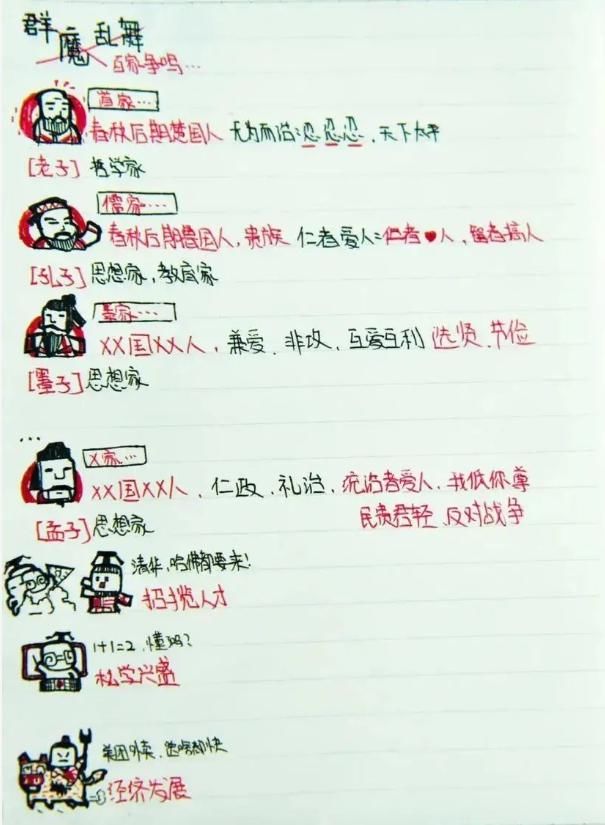 群魔乱舞
百家争鸣…
道家…
春秋后期楚国人 无为而治:忍忍忍、天下太平
[老子] 哲学家
儒家…
春秋后期鲁国人,贵族 仁者爱人:仁者♥人,智者搞人
[孔子] 思想家,教育家
墨家…
XX国XX人,兼爱、非攻、互爱互利 选贤、节俭
[墨子] 思想家
…
X家…
XX国XX人、仁政、礼治、统治者爱人、我低你尊
民贵君轻、反对战争
[孟子] 思想家
清华,哈佛都要来!
招揽人才
1+1=2,懂吗?
私学兴盛
美团外卖,送啥都快
经济发展